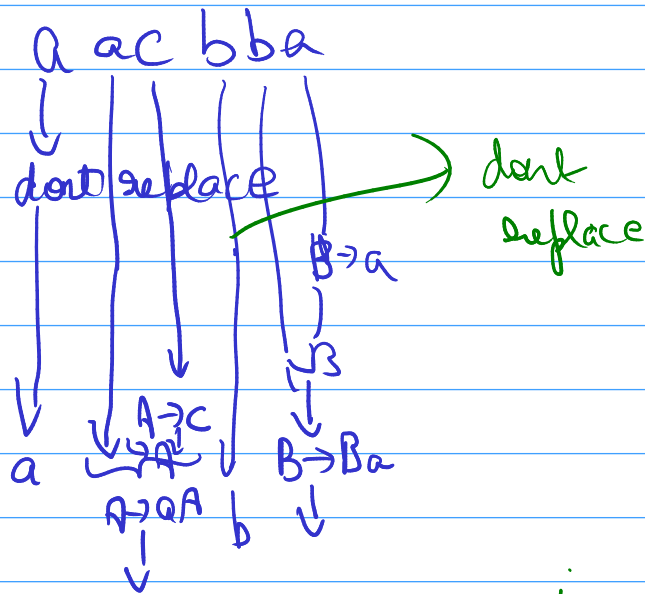 a ac bba
dont replace
dont
replace
B→a
B
A→c
→A
a
B→Ba
A→aA
b